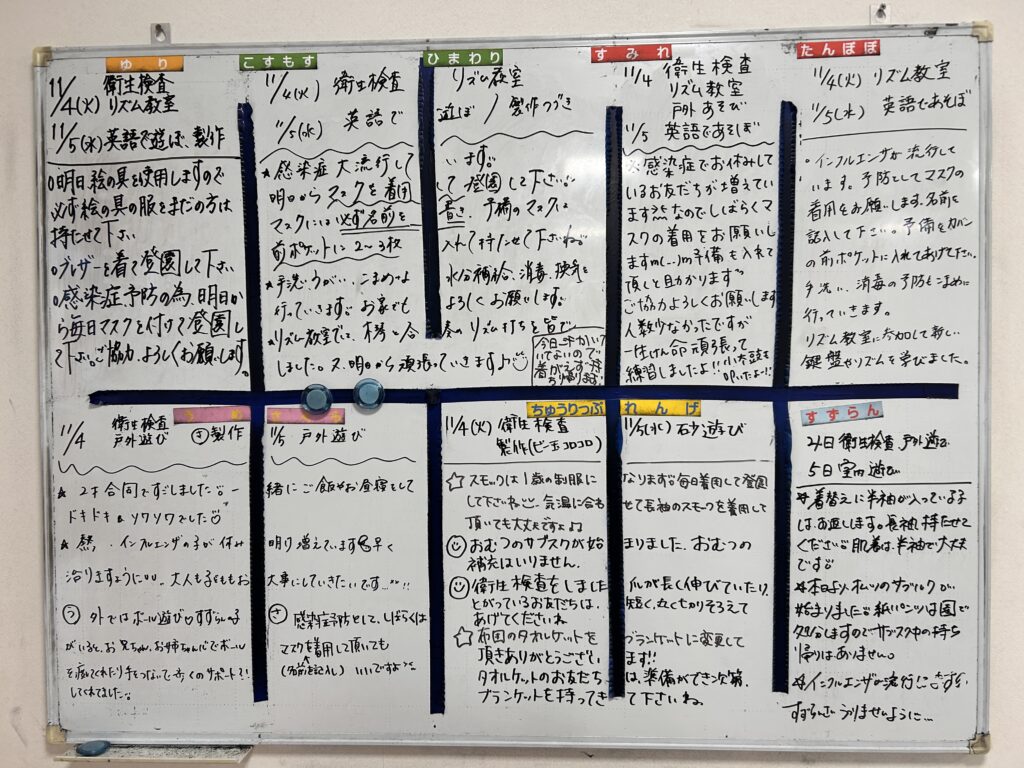 ゆり
11/4(火) 衛生検査
リズム教室
11/5(水) 英語で遊ぼ、製作
○明日絵の具を使用しますので
必ず絵の具の服をまだの方は
持たせて下さい
○ブレザーを着て登園して下さい
○感染症予防の為、明日か
ら毎日マスクを付けて登園し
て下さい。ご協力、よろしくお願いします。
こすもす
ひまわり
11/4(火) 衛生検査 リズム教室
11/5(水) 英語で遊ぼ / 製作つづき
★感染症大流行して います。
明日からマスクを着用して登園して下さい。
マスクには必ず名前を書き、予備のマスクは
前ポケットに2〜3枚入れて持たせて下さいね。
★手洗、うがい、こまめな水分補給、消毒、換気を
行っていきます。お家でもよろしくお願いします。
★リズム教室では、木琴と合奏のリズム打ちを皆で
しました。又、明日から頑張っていきます♪
すみれ
11/4 衛生検査
リズム教室
戸外あそび
11/5 英語であそぼ
※感染症でお休みして
いるお友だちが増えてい
ます なのでしばらくマ
スクの着用をお願いし
ますm(..)m予備も入れて
頂しと助かります
ご協力よろしくお願いします
人数少なかったですが
一生けん命頑張って
練習しましたよ!!
たんぽぽ
11/4(火) リズム教室
11/5(水) 英語であそぼ
○インフルエンザが流行して
います。予防としてマスクの
着用をお願いします。名前を
記入して下さい。予備をカバン
の前ポケットに入れてあげて下さい。
手洗い、消毒の予防もこまめに
行っていきます。
リズム教室に参加して新しい
鍵盤やリズムを学びました。
うめ
11/4 衛生検査
戸外遊び さ製作
11/5 戸外遊び
★2才合同ですごしました。一緒にご飯やお昼寝をして
ドキドキ&ソワソワでした
★熱、インフルエンザの子が休み明け増えています 早く
治りますように 大人も子どももお大事にしていきたいです
う 外ではボール遊び すずらんの子
がいると、お兄ちゃん、お姉ちゃんでボール
してくれてました。
さ 感染症予防として、しばらくは
マスクを着用して頂いても
いいですよ
ちゅうりっぷ
れんげ
11/4(火) 衛生検査
製作(ビー玉コロコロ)
11/5(水) 砂遊び
☆スモックは1歳の制服になります 毎日着用して登園
して下さいね 気温に合わせて長袖のスモークを着用して
頂いても大丈夫ですよ
おむつのサブスクが始まりました。おむつの
補充はいりません。
衛生検査をしました 爪が長く伸びていたり
とがっているお友だちは、短く、丸く切りそろえて
あげてくださいね
☆布団のタオルケットをブランケットに変更して
頂きありがとうございます!!
タオルケットのお友だちは、準備ができ次第、
ブランケットを持ってきて下さいね。
すずらん
4日 衛生検査、戸外遊び
5日 室内遊び
着替えに半袖が入っている子
は、お返しします。長袖、持たせて
ください 肌着は、半袖で大丈夫
です
本日より、オムツのサブスクが
始まりました 紙パンツは園で
処分しますのでサブスク中の持ち
帰りはありません。
インフルエンザ流行